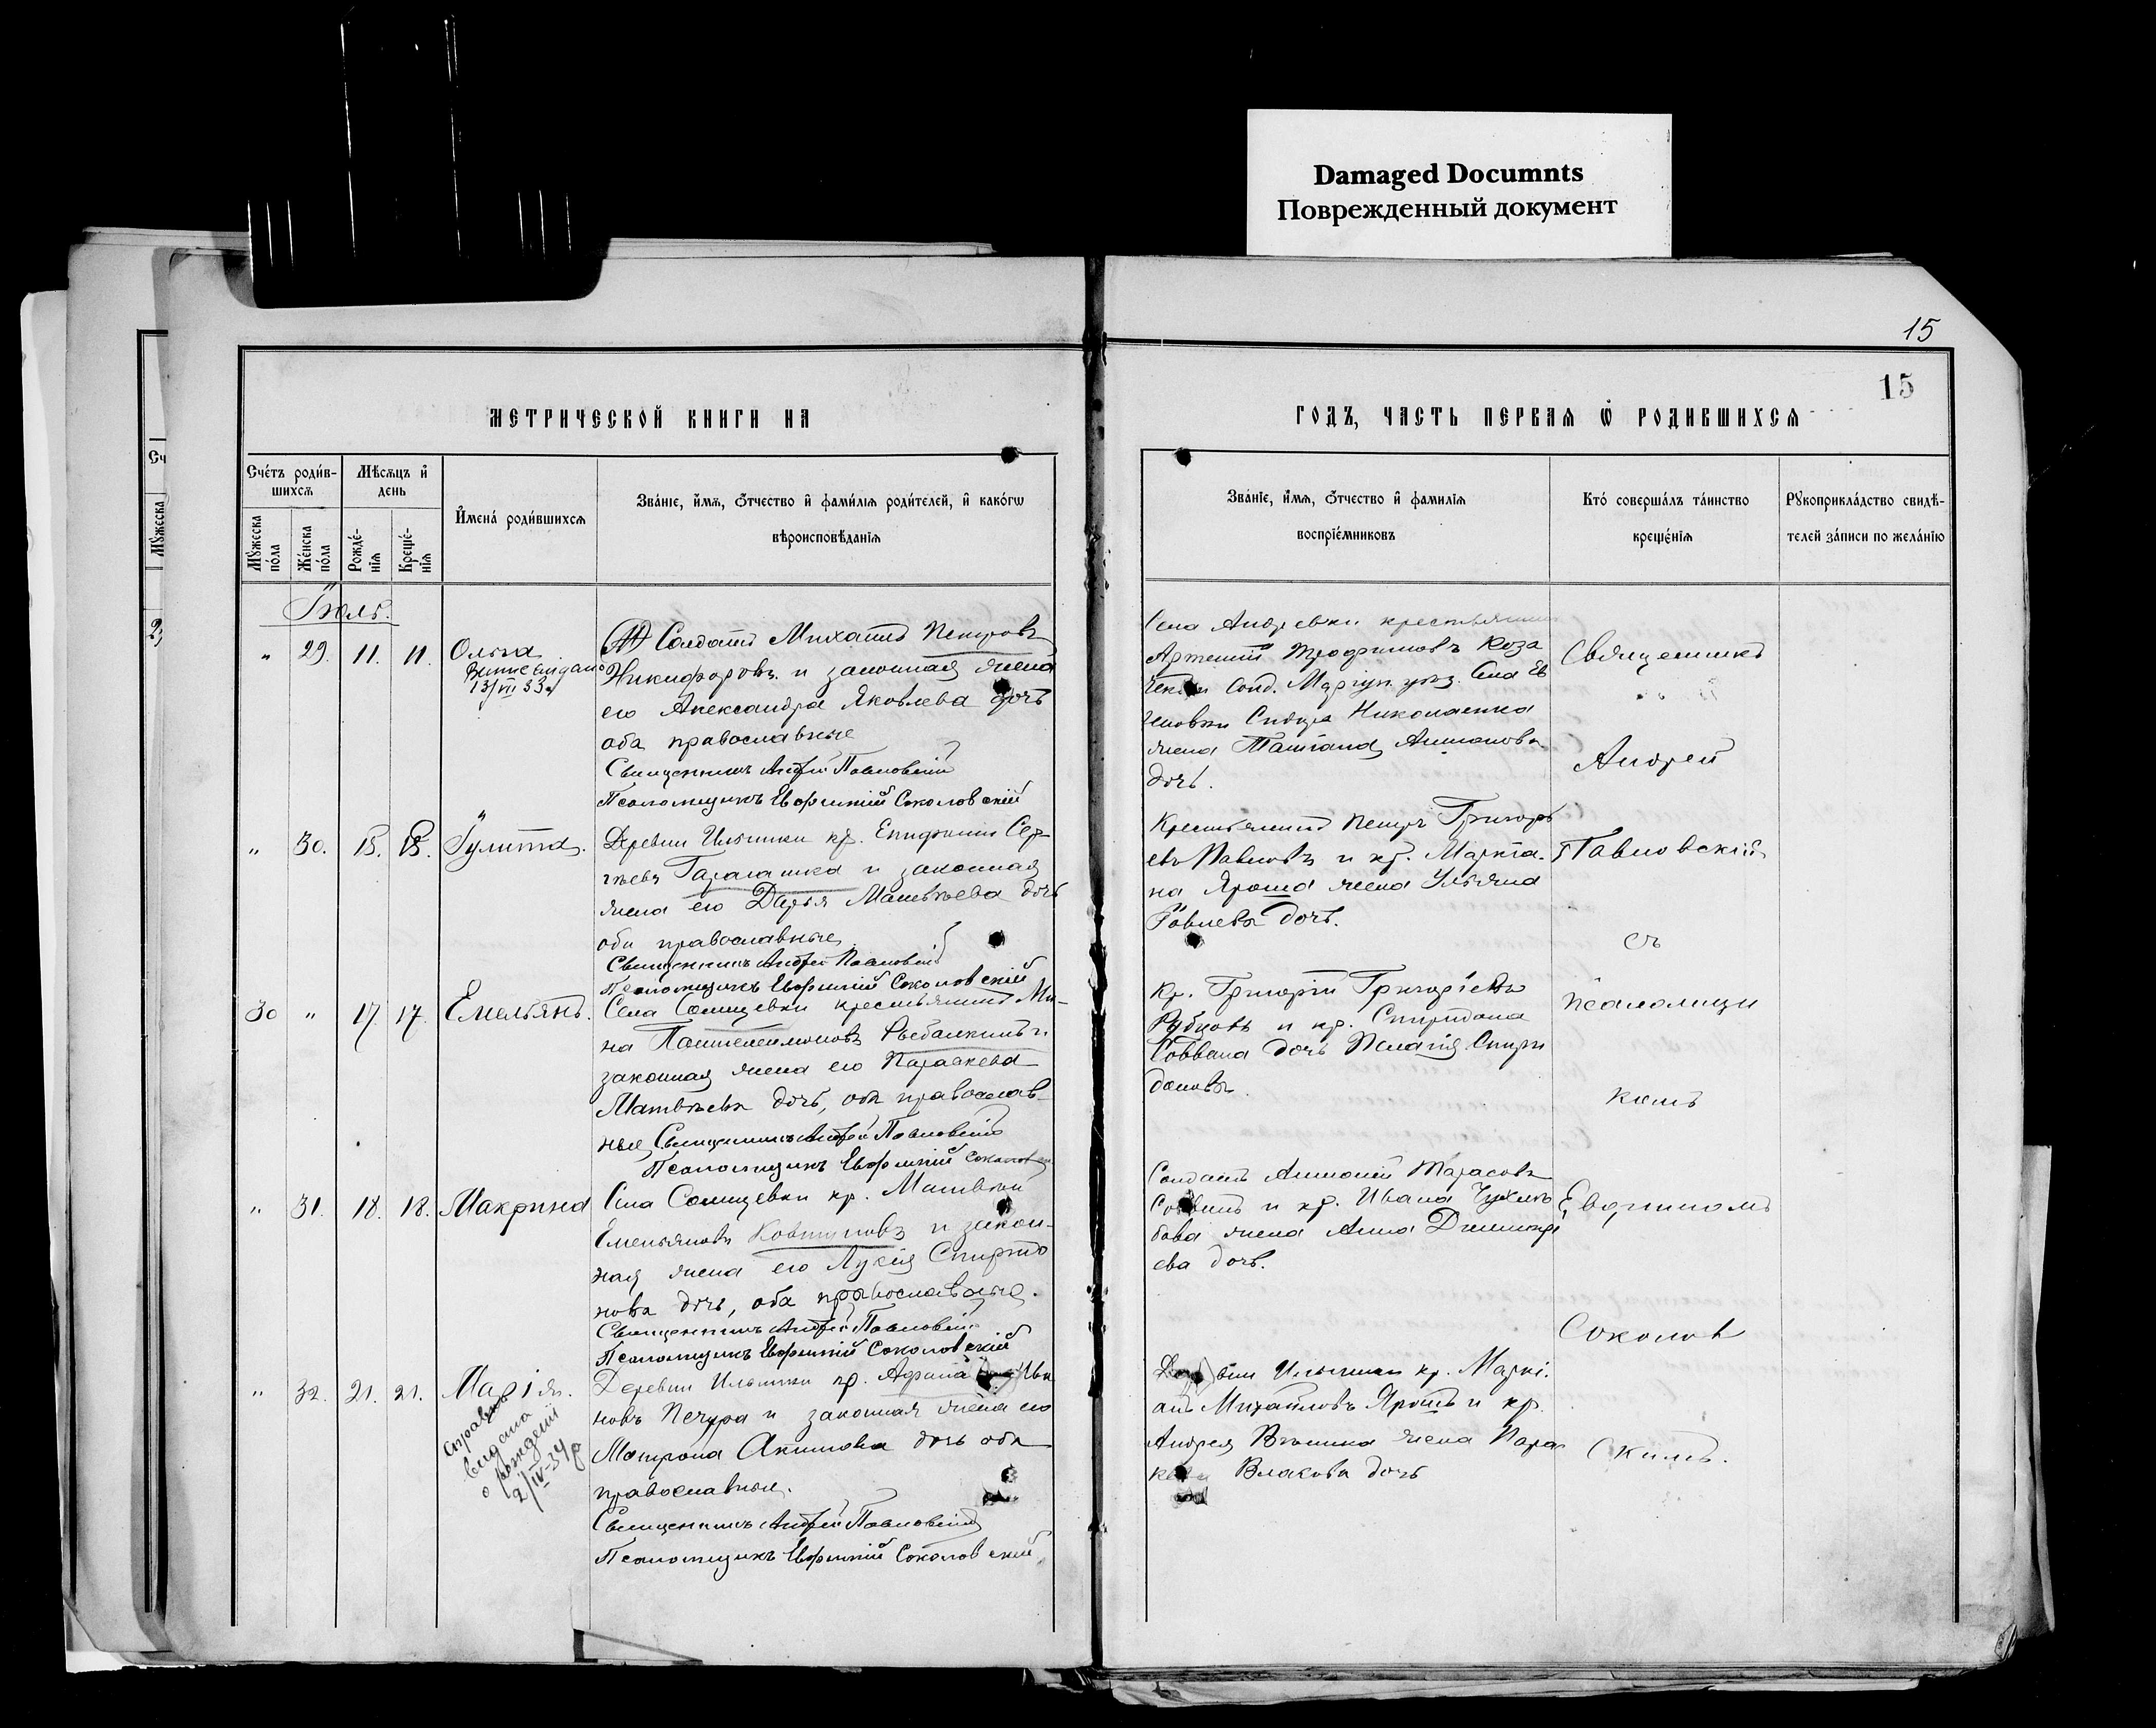 Damaged Documnts
Поврежденный документ
15
15
МЕТРИЧЕСКОЙ КНИГИ НА
ГОДЪ, ЧАСТЬ ПЕРВАЯ Ѡ РОДИВШИХСЯ
Счетъ родив-
шихся
Мѣсяцъ и
день
Мужеска
пола
Женска
пола
Рожде-
нія
Креще-
нія
Имена родившихся
Званіе, имя, отчество и фамилія родителей, и какогѡ
вѣроисповѣданія
Званіе, имя, отчество и фамилія
воспріемниковъ
Кто совершалъ таинство
крещенія
Рукоприкладство свидѣ-
телей записи по желанію
Іюль.
" 29. 11. 11. Ольга
13/VII 33
Солдатъ Михаилъ Петровъ
Никифоровъ и законная жена
его Александра Яковлева дочь
оба православные
Священникъ Андрей Павловскій
Псаломщикъ Евфимій Соколовскій
Села Андреевки крестьянинъ
Артемій Трофимовъ Коза
Сидора Николаенка
жена Татіана Антонова
дочь.
" 30. 15. 15. Іулитта.
Деревни Ильинки кр. Епифаній Сер-
гѣевъ Галагашка и законная
жена его Дарья Матвѣева дочь
оба православные
Священникъ Андрей Павловскій
Псаломщикъ Евфимій Соколовскій
Крестьянинъ Петръ Григорь
евъ Павловъ и кр. Маркіа-
на Яроша жена Ульяна
Іовлева дочь.
30 " 17. 17. Емельянъ.
Села Солнцевки крестьянинъ Ми-
на Пантелеимоновъ Рыбалкинъ и
законная жена его Параскева
Матвѣева дочь, оба православ-
ные Священникъ Андрей Павловскій
Псаломщикъ Евфимій Соколовскій
Кр. Григорій Григорьевъ
Рубцовъ и кр. Спиридона
дочь Пелагія Спири
донова.
" 31. 18. 18. Макрина
Села Солнцевки кр. Матвѣй
Емельяновъ Ковтуновъ и закон-
ная жена его Лукія Спиридо
нова дочь, оба православные.
Священникъ Андрей Павловскій
Псаломщикъ Евфимій Соколовскій
Солдатъ Антоній Тарасовъ
и кр. Ивана
жена Анна Димитрі
ева дочь.
" 32. 21. 21. Марія.
Справка
выдана
о рожденіи
2/IV-34 г
Деревни Ильинки кр. Ива
новъ Печура и законная жена его
Матрона Акимова дочь оба
православные.
Священникъ Андрей Павловскій
Псаломщикъ Евфимій Соколовскій
Ильинки кр. Маркі-
анъ Михайловъ Ярошъ и кр.
Андрея жена Пара
Власова дочь
Священникъ
Андрей
Павловскій
съ
псаломщи
комъ
Евфиміемъ
Соколов
скимъ.